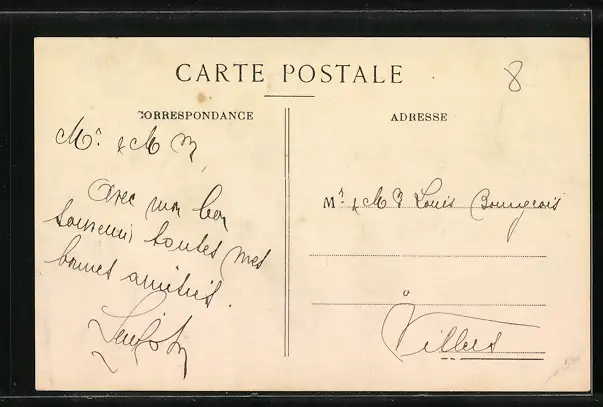 CARTE POSTALE
8
CORRESPONDANCE
ADRESSE
Mr & M
Avec mon bon
souvenir, toutes mes
bonnes amitiés.
Mr & M Louis Bourgeois
à
Villers